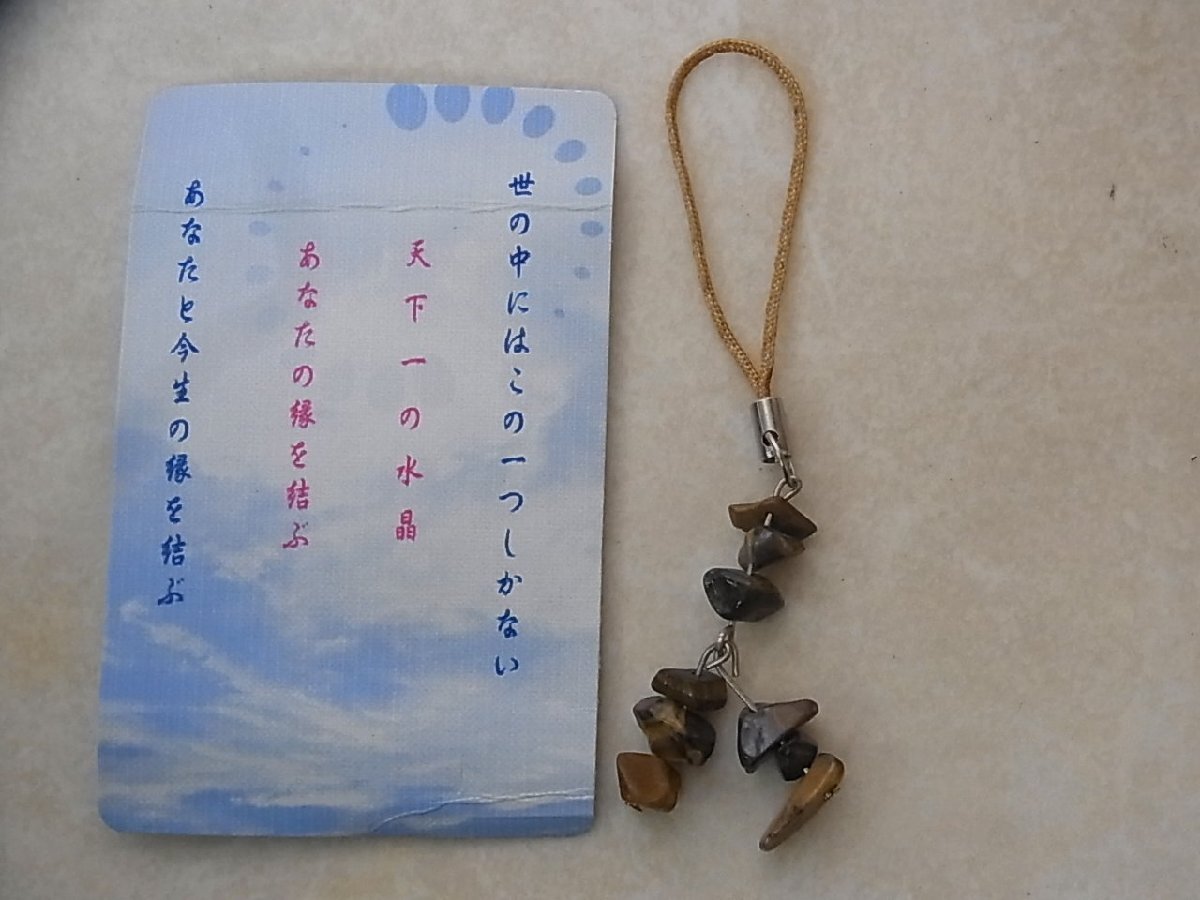 世の中にはこの一つしかない
天下一の水晶
あなたの縁を結ぶ
あなたと今生の縁を結ぶ